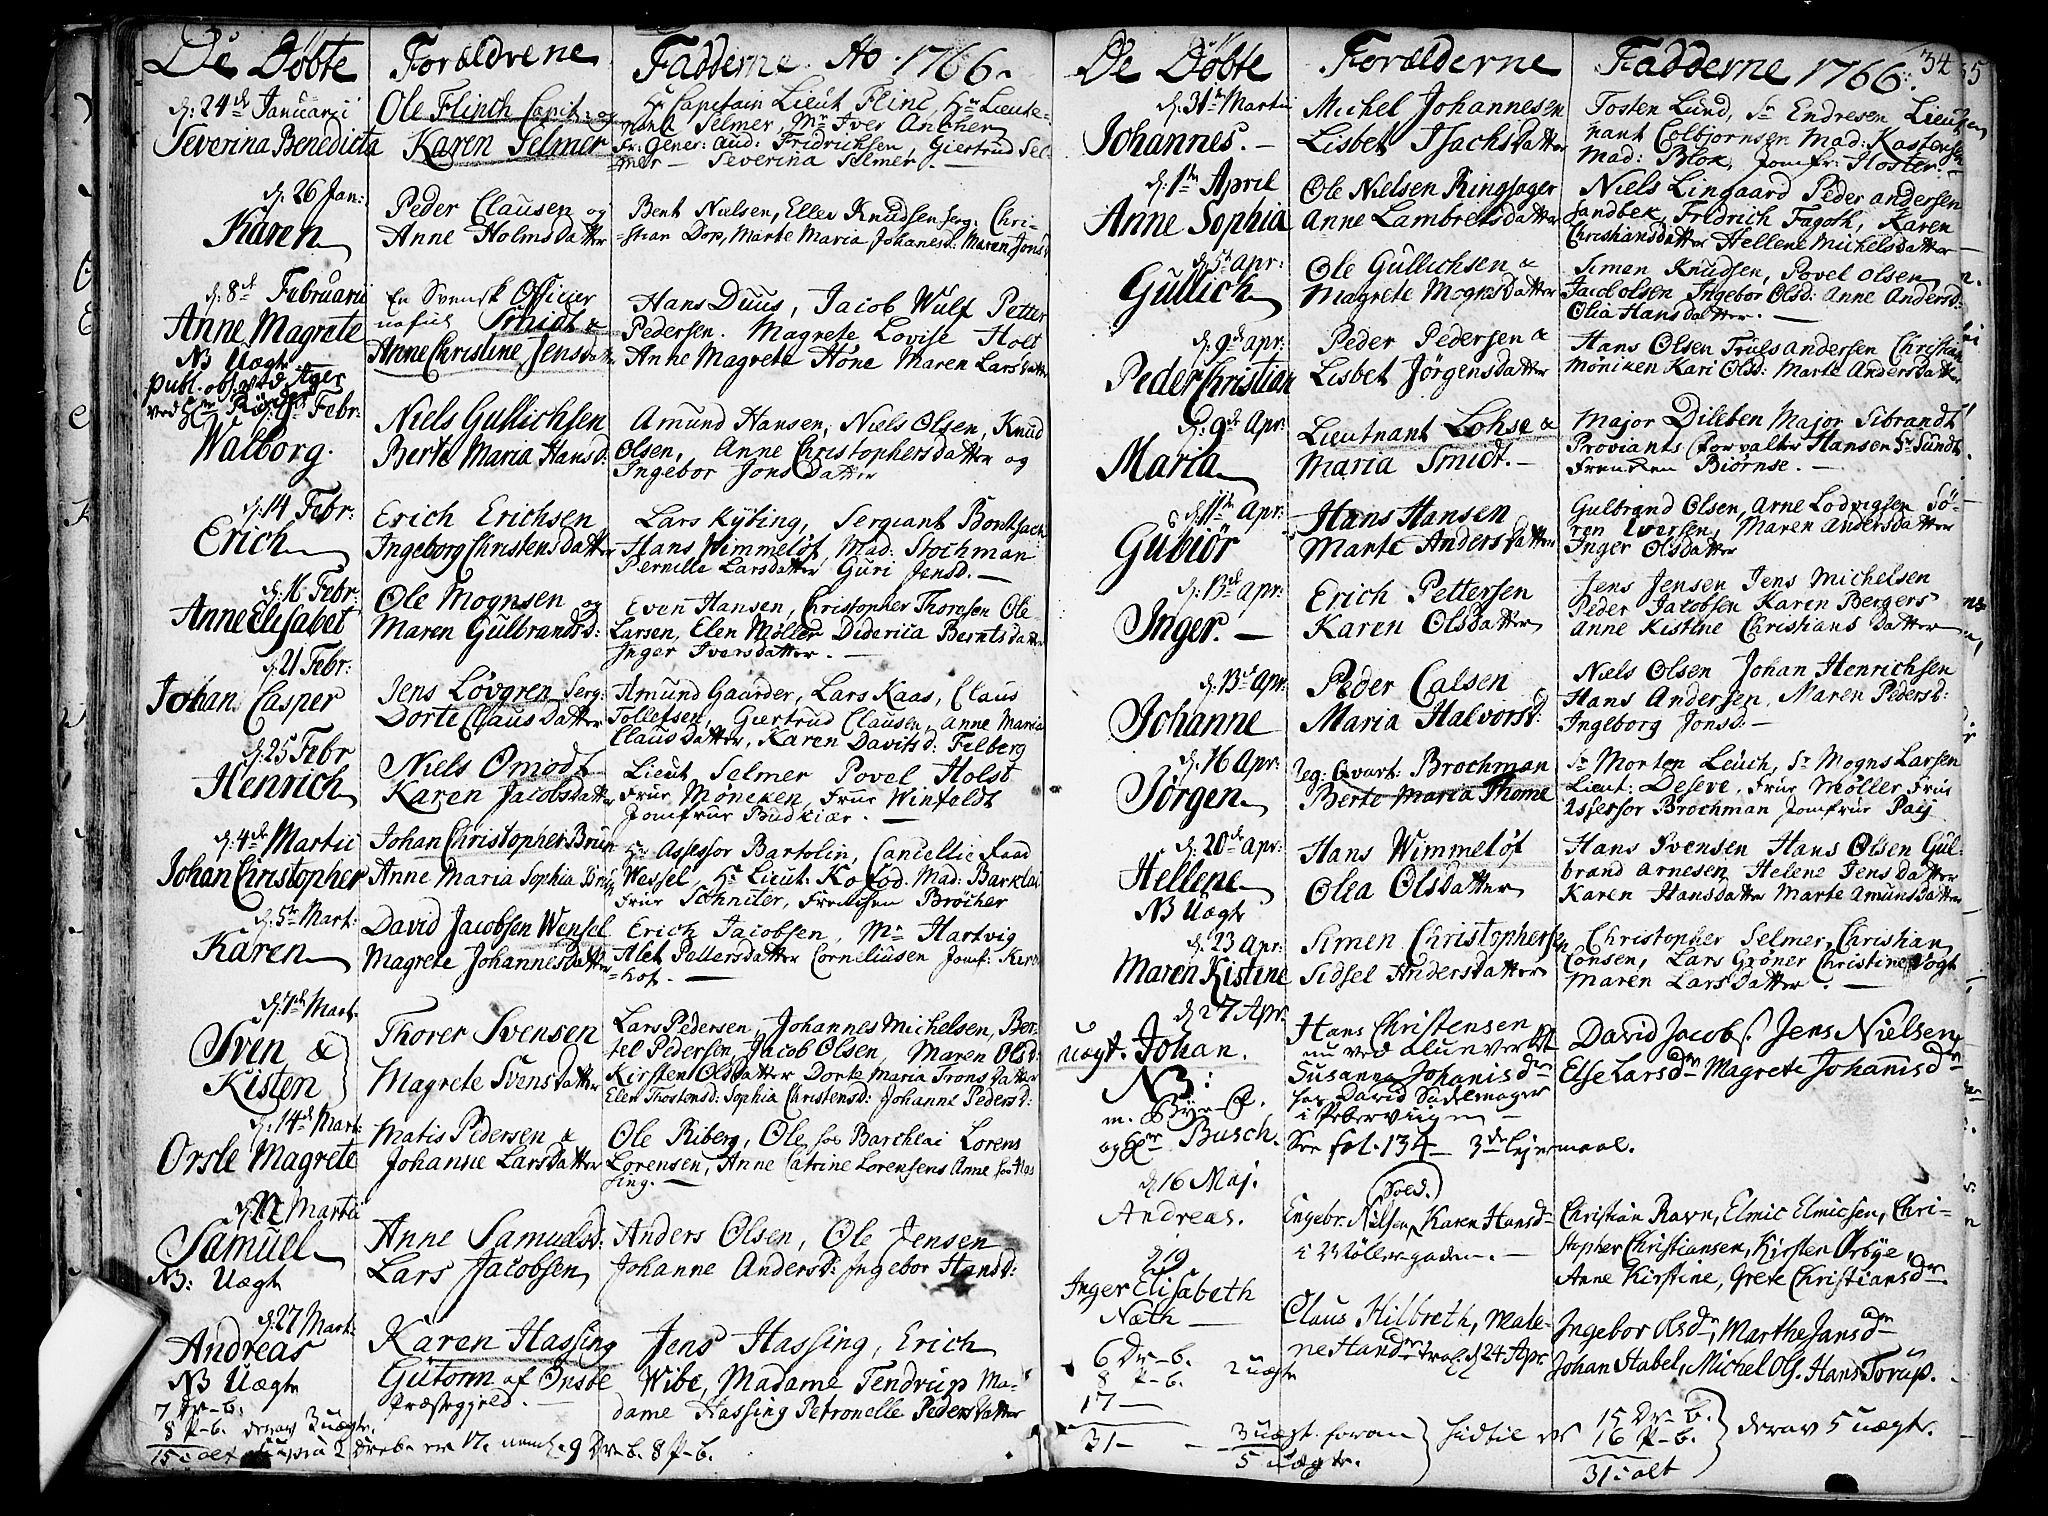 De Döbte
Forældrene
Fadderne. Ao. 1766.
d: 24de Januarii
Severina Benedicta
Ole Flinch Capit: og
Karen Selmer
Hr Capitain Lieut Flinc, Hr Lieute-
nant Selmer, Mr Iver Ancher
Fr: Gener: Aud: Fridrichsen, Giertrud Sel-
mer — Severina Selmer. —
d. 26 Jan:
Karen
Peder Clausen og
Anne Holmsdatter
Bent Nielsen, Ellev Knudsen serg: Chri-
stian Dop, Marte Maria Johanesd: Maren Jonsd
d: 8de Februarii
Anne Magrete
NB Uægte
publ. abs. ved Ager
En Svensk Officier
nafnl Smidt &
Anne Christine Jensdatter
Hans Duus, Jacob Wulf Petter
Pedersen. Magrete Lovise Holt
Anne Magrete Höne Maren Larsdatter
d: 9de Febr:
Walborg.
Niels Gullichsen
Berte Maria Hansd:
Amund Hansen, Niels Olsen, Knud
Olsen, Anne Christophersdatter og
Ingebor Jonsdatter
d: 14 Febr:
Erich
Erich Erichsen
Ingeborg Christensdatter
Lars Kyting, Sergiant Bonksach
Hans Wimmelöf, Mad: Stochman
Pernille Larsdatter Guri Jensd. —
d: 16 Febr:
Anne Elisabet
Ole Mognsen og
Maren Gulbrandsd:
Even Hansen, Christopher Thoresen Ole
Larsen, Elen Møller Didericia Berntsdatter
Inger Iversdatter. —
d: 21 Febr:
Johan Casper
Jens Lövgren Serg:
Dorte Clausdatter
Amund Gaarder, Lars Kaas, Claus
Tollefsen, Giertrud Clausen, Anne Maria
Clausdatter, Karen Davitsd: Filberg
d: 25 Febr
Henrich
Niels Omodt
Karen Jacobsdatter
Lieut Selmer Povel Holst
Frue Möneken, Frue Winfeldt
Jomfrue Budkiær. —
d: 4de Martii
Johan Christopher
Johan Christopher Brun
Anne Maria Sophia Brun
Hr Assessor Bartolin, Cancellie Raad
Wessel, Hr Lieut: Kofod. Mad: Barklai
Frue Schniler, Frencken Brocher
d: 5te Mart:
Karen
David Jacobsen Wensel
Magrete Johannesdatter
Erich Jacobsen, Mr Hartvig
Alet Pettersdatter Corneliusen Jomf: Kirc-
hof. —
d: 7de Mart.
Sven &
Kisten
Thorer Svensen
Magrete Svensdatter
Lars Pedersen, Johannes Michelsen, Ber-
tel Pedersen, Jacob Olsen, Maren Olsd:
Kirsten Olsdatter Dorte Maria Tronsdatter
Elen Thostensd: Sophia Christensd: Johanne Pedersd:
d: 14de Mart:
Orsle Magrete
Matis Pedersen &
Johanne Larsdatter
Ole Riberg, Ole hos Barchlai Lorens
Lorensen, Anne Catrine Lorensens Anne hos Has
sing. —
Martii
Samuel
NB: Uægte
Anne Samuelsd:
Lars Jacobsen
Anders Olsen, Ole Jensen
Johanne Andersd: Ingebor Hansd:
d: 27 Mart:
Andreas
NB Uægte
Karen Hassing
Gutorm af Onsøe
Præstegield. —
Jens Hassing, Erich
Wibe, Madame Tendrup Ma-
dame Hassing Petronelle Pedersdatter
7 Dr-b.
8 P-b. derav 3 uægte.
15 i alt
De Döbte
Forælderne
Fadderne 1766.
34
d: 31te Martii
Johannes. —
Michel Johannesen
Lisbet Isachsdatter
Tosten Lund, Sr Endresen Lieute
nant Colbjørnsen Mad: Kastensen
Mad: Blok, Jomfr: Hoster. —
d: 1te April
Anne Sophia
Ole Nielsen Ringsager
Anne Lambretsdatter
Niels Lingaard Peder andersen
Sandbek, Fridrich Fagoth, Karen
Christiansdatter Hellene Michelsdatter
d. 5te apr:
Gullich
Ole Gullichsen &
Magrete Mognsdatter
Simen Knudsen, Povel olsen
Jacob olsen Ingebor Olsd: Anne Andersd:
Olia Hansdatter. —
d. 9de apr:
Peder Christian
Peder Pedersen &
Lisbet Jörgensdatter
Hans Olsen Truls andersen Christian
Möniken Kari Olsd: Marte Andersdatter
d: 9de Apr:
Maria
Lieutnant Lohse &
Maria Smidt. —
Major Dileben Major Sibrandt
Proviants forvalter Hansen Sr Sundt
Frencken Biørnse. —
d: 11te Apr:
Gubiör
Hans Hansen
Marte Andersdatter
Gulbrand Olsen, Arne Lodvigsen Sö-
ren Iversen, Maren Andersdatter
Inger Olsdatter
d: 13de apr:
Inger. —
Erich Pettersen
Karen Olsdatter
Jens Jensen Jens Michelsen
Peder Jacobsen Karen Bergers
Anne Kistine Christiansdatter
d: 13de Apr:
Johanne
Peder Calsen
Maria Halvorsd:
Niels Olsen Johan Henrichsen
Hans Andersen, Maren Pedersd:
Ingeborg Jonsd: —
d: 16 Apr:
Jörgen
Reg: Qvart: Brochman
Berte Maria Thome
Sr Morten Leuch, Sr Mogns Larsen
Lieut: Deseve, Frue Møller Frue
Assessor Brochman Jomfrue Paij
d: 20de apr:
Hellene
NB Uægte
Hans Wimmelöf
Olea Olsdatter
Hans Svensen Hans Olsen Gul-
brand Arnesen, Helene Jensdatter
Karen Hansdatter Marte Amunsdatter
d: 23 Apr:
Maren Kistine
Simen Christophersen
Sidsel Andersdatter
Christopher Selmer, Christian
Consen, Lars Grøner Christine Vogt
Maren Larsdatter. —
d: 27 Apr:
uægt. Johan.
NB:
Hans Christensen
nu ved alunverket
Susanna Johanisdr
hos David Sadelmager
i Peterviigen —
David Jacobs. Jens Nielsen
Else Larsdr Magrete Johanisdr
og Hr Busch.
See fol. 134 — 3de Lejermaal.
d 16 Maj.
Andreas.
(Sold.)
Engebr. Nielsen, Karen Hansd-
i Møllergaden. —
Christian Ravn, Elmic Elmicsen, Chri-
stopher Christiansen, Kirsten Örbye,
Anne Kirstine, Grete Christiansdr.
d 19
Inger Elisabeth
Næth —
Claus Hilbreth, Male-
ne Handr. trol. d 24 Apr.
Ingebor Olsdr, Marthe Jansdr
Johan Stabel, Michel Ols. Hans Torup.
6 Dr-b.
8 P-b.
2 uægte
17 —
31 —
3 uægt. foran
5 uægte.
hidtil er
15 Dr-b.
16 P-b.
31 i alt
derav 5 uægte.